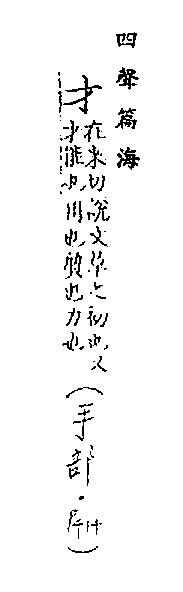 四聲篇海
才
在來切說文草之初也又
才能也用也質也力也
(手部・)